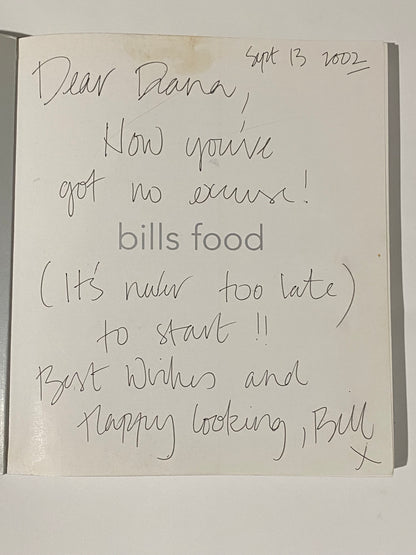 Sept 13 2002
Dear Diana,
Now you've
got no excuse!
bills food
(It's never too late)
to start!!
Best Wishes and
Happy Cooking, Bill
x